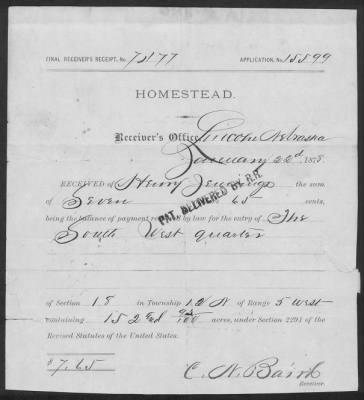 FINAL RECEIVER'S RECEIPT, No. 7477 APPLICATION, No. 15599
HOMESTEAD.
Receiver's Office, Lincoln Nebraska
22d, 1878.
RECEIVED of Henry Jennings the sum
of Seven 65 cents,
being the balance of payment required by law for the entry of The
South West quarter
PAT. DELIVERED BY R.R.
of Section 18 in Township 12 N of Range 5 West
containing 152 acres, under Section 2291 of the
Revised Statutes of the United States.
$7.65
C. N. Baird
Receiver.